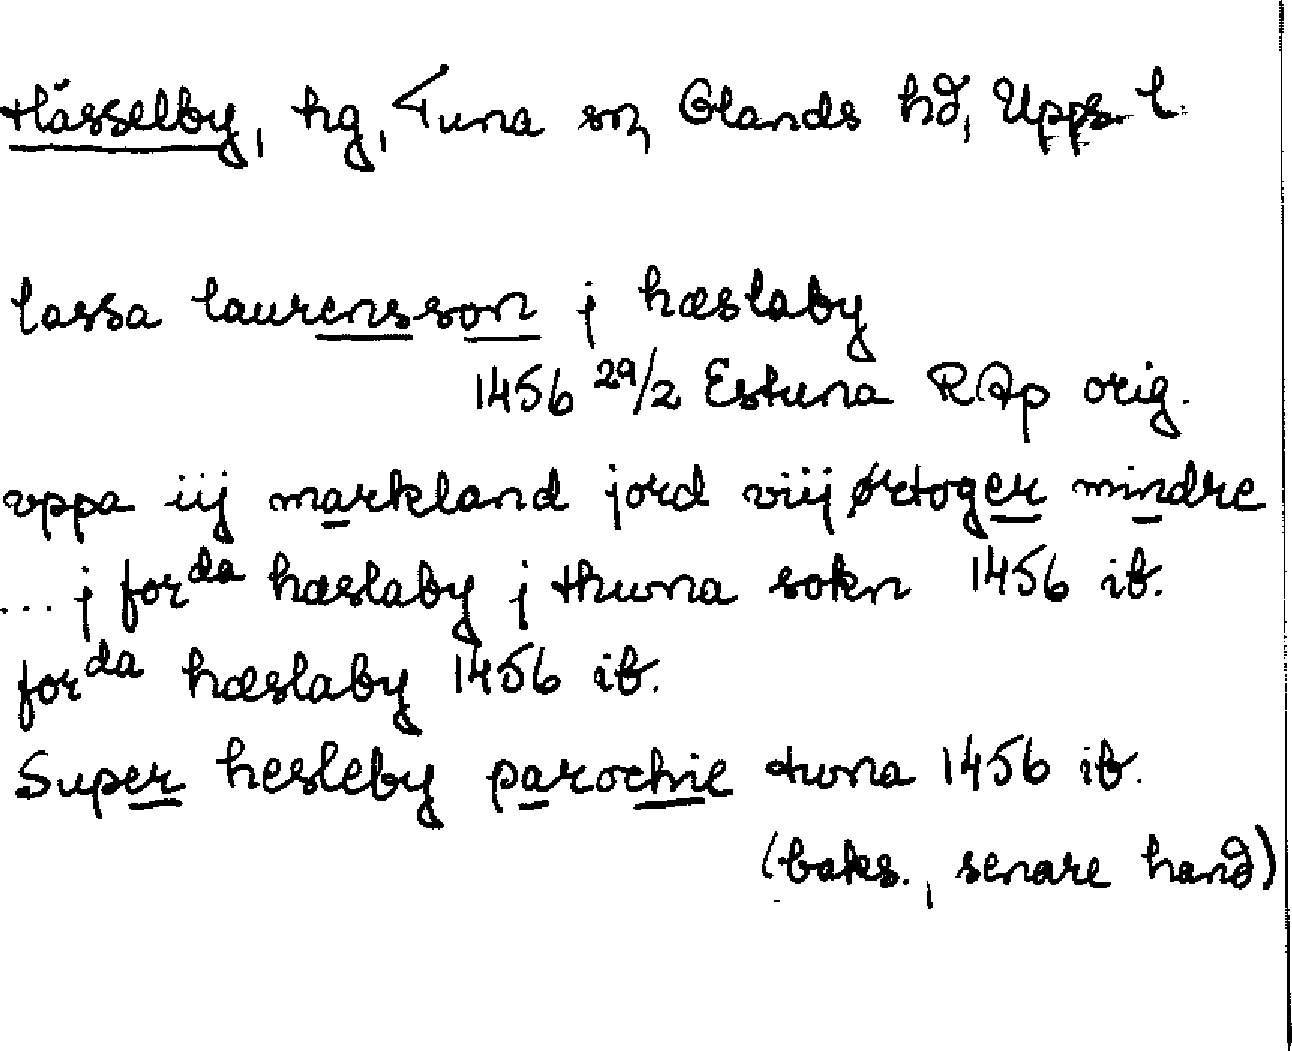 Hässelby, hg, Tuna sn, Olands hd, Upps. l.
lassa laurensson j hæslaby
1456 29/2 Estuna RAp orig.
vppa iij markland jord viij ørtoger mindre
... j forda hæslaby j thuna sokn 1456 ib.
forda hæslaby 1456 ib.
Super hesleby parochie tuna 1456 ib.
(baks., senare hand)